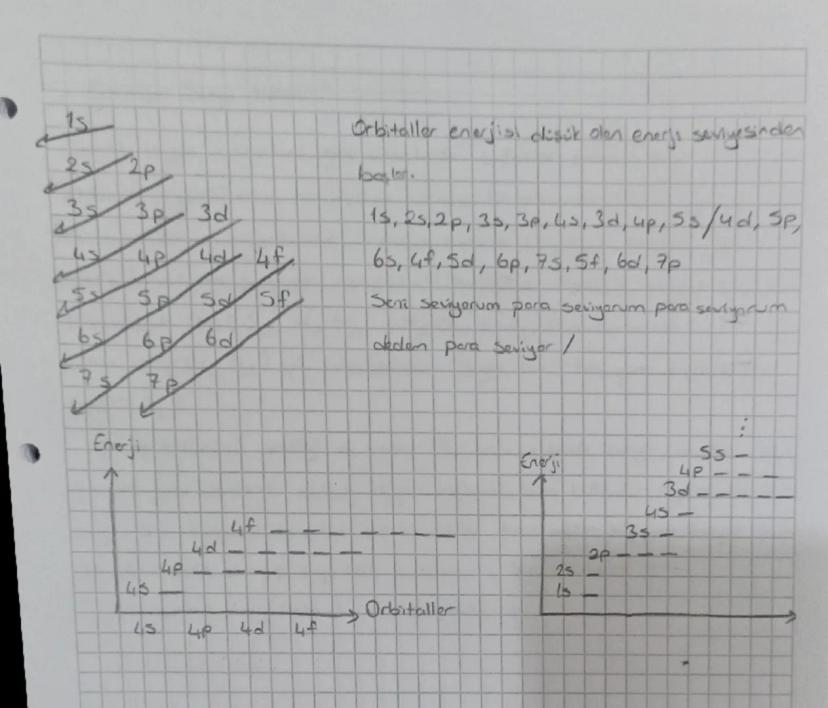 1s
2s 2p
3s 3p 3d
4s 4p 4d 4f
5s 5p 5d 5f
6s 6p 6d
7s 7p
Orbitaller enerjisi düşük olan enerji seviyesinden
başlar.
1s, 2s, 2p, 3s, 3p, 4s, 3d, 4p, 5s / 4d, 5p,
6s, 4f, 5d, 6p, 7s, 5f, 6d, 7p
Seni seviyorum para seviyorum para seviyorum
dedem para seviyor /
Enerji
4f
4d
4p
4s
Orbitaller
4s 4p 4d 4f
Enerji
5s
4p
3d
4s
3s
2p
2s
1s